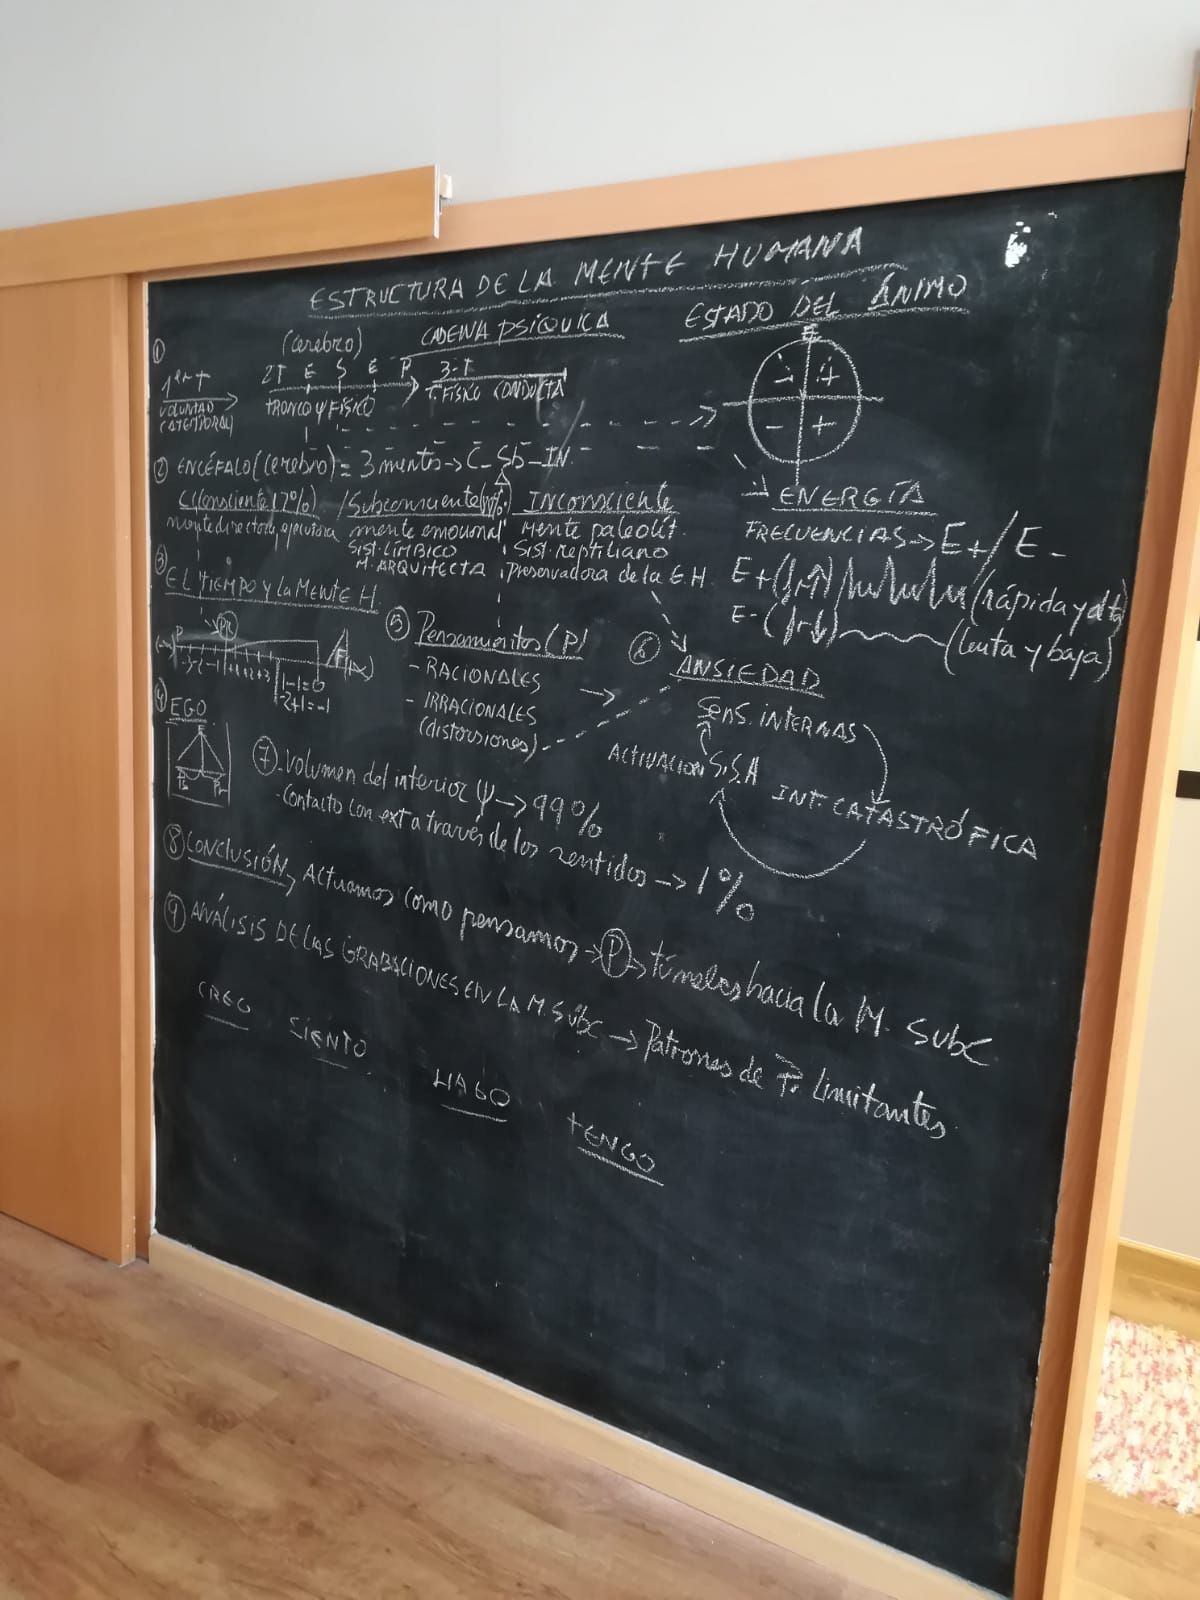 ESTRUCTURA DE LA MENTE HUMANA
① (cerebro) CADENA PSÍQUICA
1er T
VOLUNTAD
(ATEMPORAL)
2T E S E P
TRONCO Ψ FÍSICO
3-T
T. FÍSICO CONDUCTA
ESTADO DEL ÁNIMO
E
- +
- +
② ENCÉFALO (cerebro) = 3 mentes → C - Sb - IN.
C (Consciente 17%)
mente directora, ejecutora
/Subconsciente
mente emocional
SIST. LÍMBICO
M. ARQUITECTA
Inconsciente
Mente paleolít.
Sist. reptiliano
preservadora de la E H.
ENERGÍA
FRECUENCIAS → E+ / E-
E+ (rápida y alta)
E- (lenta y baja)
③ EL TIEMPO y la MENTE H.
P PR F
-3 -2 -1 +1 +2 +3
1-1=0
-2+1=-1
④ EGO
⑤ Pensamientos (P)
- RACIONALES
- IRRACIONALES
(distorsiones)
⑥ ANSIEDAD
SENS. INTERNAS
ACTIVACION S.S.A
INT. CATASTRÓFICA
⑦ - Volumen del interior Ψ → 99%
- Contacto con ext a través de los sentidos → 1%
⑧ CONCLUSIÓN, Actuamos como pensamos → P → túneles hacia la M. Subc
⑨ ANÁLISIS DE LAS GRABACIONES EN LA M. SUBC → Patrones de P. limitantes
CREO SIENTO HAGO TENGO